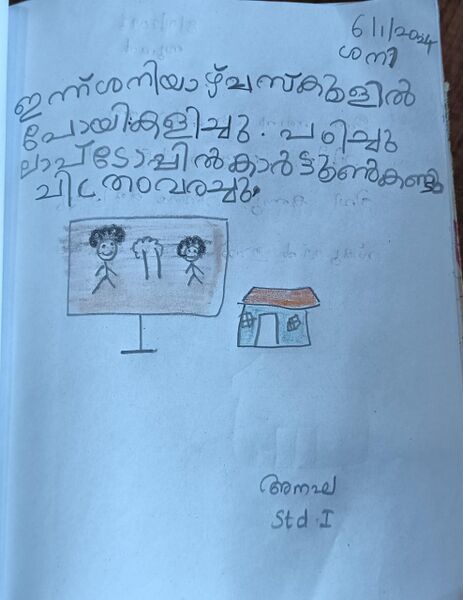 6/1/2024
ശനി
ഇന്ന് ശനിയാഴ്ച സ്കൂളിൽ
പോയി കളിച്ചു. പഠിച്ചു
ലാപ്ടോപ്പിൽ കാർട്ടൂൺ കണ്ടു
ചിത്രം വരച്ചു.
അനഘ
Std. I